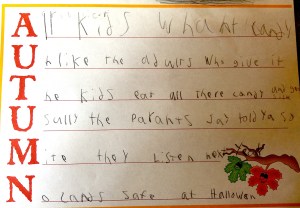 All kids whant candy
Unlike the adults who give it
The kids eat all there candy and
Usally the parants say told ya so
Mite they listen
No lands safe at Hallowen